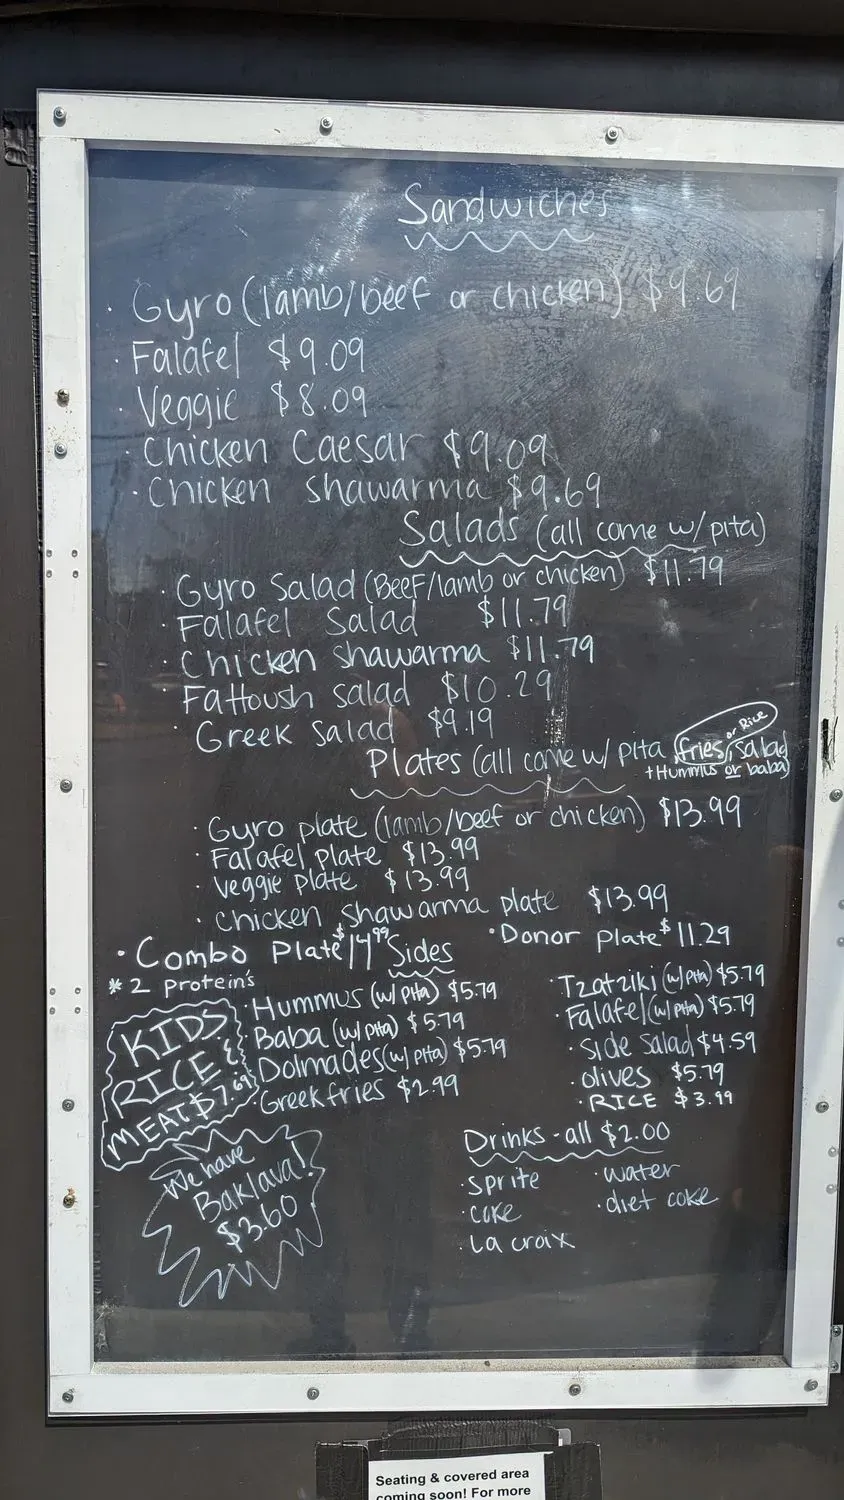 Sandwiches
· Gyro (lamb/beef or chicken) $9.69
· Falafel $9.09
· Veggie $8.09
· Chicken Caesar $9.09
· Chicken shawarma $9.69
Salads (all come w/ pita)
· Gyro Salad (Beef/lamb or chicken) $11.79
· Falafel Salad $11.79
· Chicken shawarma $11.79
· Fattoush salad $10.29
· Greek Salad $9.19
Plates (all come w/ pita, fries, salad
or Rice
+ Hummus or baba)
· Gyro plate (lamb/beef or chicken) $13.99
· Falafel plate $13.99
· Veggie plate $13.99
· Chicken shawarma plate $13.99
· Combo Plate $14.99
* 2 Protein's
· Donor Plate $11.29
Sides
· Hummus (w/ pita) $5.79
· Baba (w/ pita) $5.79
· Dolmades (w/ pita) $5.79
· Greek fries $2.99
· Tzatziki (w/ pita) $5.79
· Falafel (w/ pita) $5.79
· Side Salad $4.59
· olives $5.79
· RICE $3.99
KIDS
RICE &
MEAT $7.69
We have
Baklava!
$3.60
Drinks - all $2.00
· Sprite
· coke
· La croix
· water
· diet coke
Seating & covered area
coming soon! For more